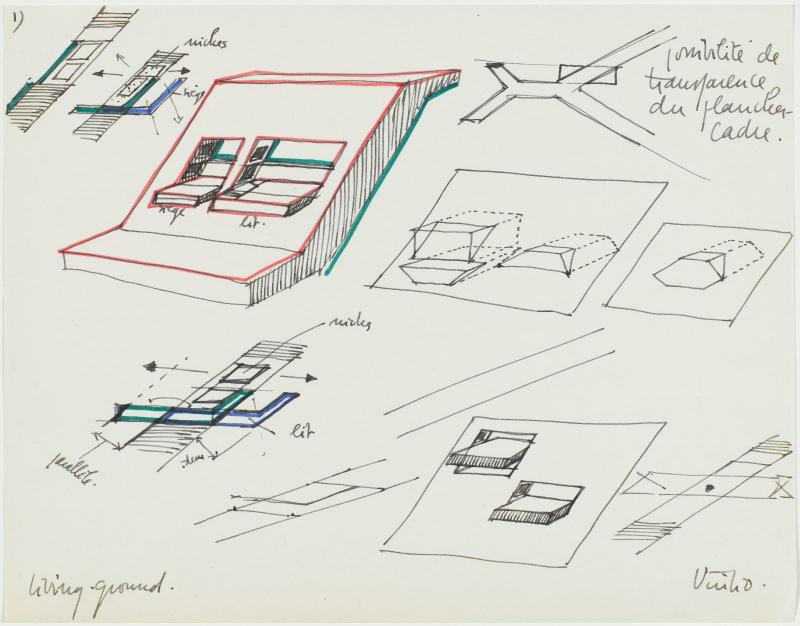 1)
niches
siège
possibilité de
transparence
du plancher-
cadre.
siège
lit.
niches
lit
parallèle.
Living-ground.
Virilio.